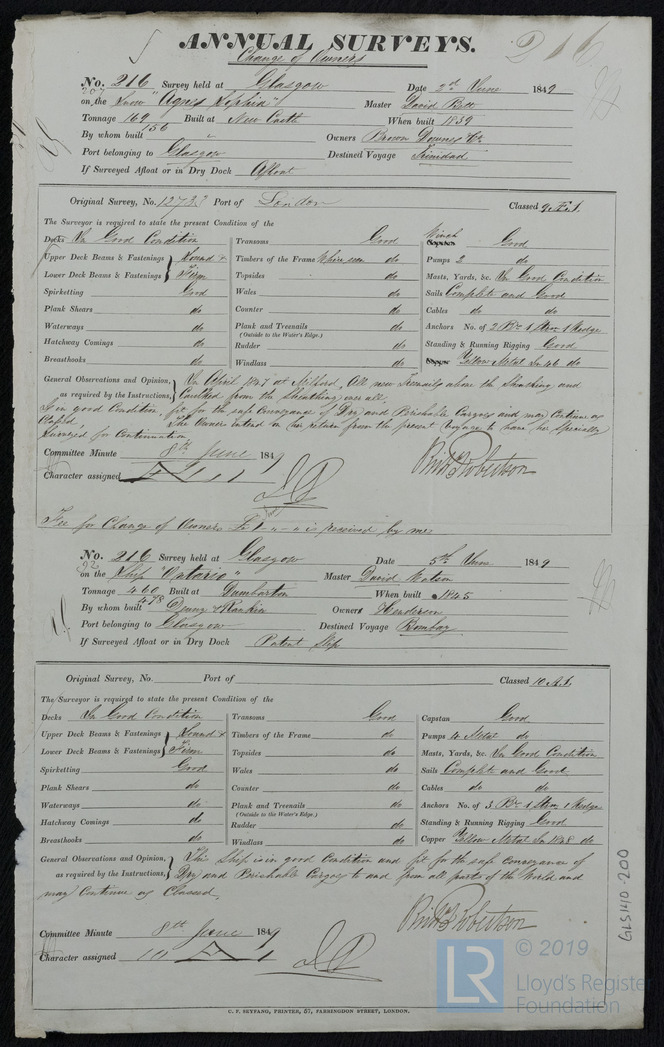 ANNUAL SURVEYS.
216
Change of Owners
No. 216 Survey held at Glasgow Date 2nd June 1849
on the Snow "Agnes Sophia" Master David
Tonnage 169 Built at New Castle When built 1839
156
By whom built " Owners Brown Downes & Co
Port belonging to Glasgow Destined Voyage Trinidad
If Surveyed Afloat or in Dry Dock Afloat
Original Survey, No. Port of London Classed
The Surveyor is required to state the present Condition of the
Decks In Good Condition Transoms Good Winch Good
Upper Deck Beams & Fastenings Sound & Timbers of the Frame Where seen do Pumps 2 do
Lower Deck Beams & Fastenings Firm Topsides do Masts, Yards, &c. In Good Condition
Spirketting Good Wales do Sails Complete and Good
Plank Shears do Counter do Cables do do
Waterways do Plank and Treenails do Anchors No. of 2 Br. 1 Strm 1 Kedge
(Outside to the Water's Edge.)
Hatchway Comings do Rudder do Standing & Running Rigging Good
Breasthooks do Windlass do Copper Yellow Metal In 46 do
General Observations and Opinion, In April 1847 at Milford, All new Treenails above the Sheathing and
as required by the Instructions, Caulked from the Sheathing over all.
Is in good Condition, fit for the safe Conveyance of Dry and Perishable Cargoes and may Continue as
Classed, The Owners intend on her return from the present Voyage to have her Specially
Surveyed for Continuation
Committee Minute 8th June 1849 Robertson
Character assigned
Fee for Change of Owners £1 " - " is received by me
No. 216 Survey held at Glasgow Date 5th June 1849
on the Ship "Ontario" Master David Watson
Tonnage 460 Built at Dumbarton When built 1845
478
By whom built Denny & Rankin Owners Henderson
Port belonging to Glasgow Destined Voyage Bombay
If Surveyed Afloat or in Dry Dock Patent Slip
Original Survey, No. Port of Classed 10 A.1.
The Surveyor is required to state the present Condition of the
Decks In Good Condition Transoms Good Capstan Good
Upper Deck Beams & Fastenings Sound & Timbers of the Frame do Pumps 4 Metal do
Lower Deck Beams & Fastenings Firm Topsides do Masts, Yards, &c. In Good Condition
Spirketting Good Wales do Sails Complete and Good
Plank Shears do Counter do Cables do do
Waterways do Plank and Treenails do Anchors No. of 3 Br. 1 Strm 1 Kedge
(Outside to the Water's Edge.)
Hatchway Comings do Rudder do Standing & Running Rigging Good
Breasthooks do Windlass do Copper Yellow Metal In 1848 do
General Observations and Opinion, This Ship is in good Condition and fit for the safe Conveyance of
as required by the Instructions, Dry and Perishable Cargoes to and from all parts of the World and
may Continue as Classed,
Committee Minute 8th June 1849 Robertson
Character assigned 10 A 1
C. F. SEYFANG, PRINTER, 57, FARRINGDON STREET, LONDON.
GLS140-200
LR
© 2019
Lloyd's Register
Foundation